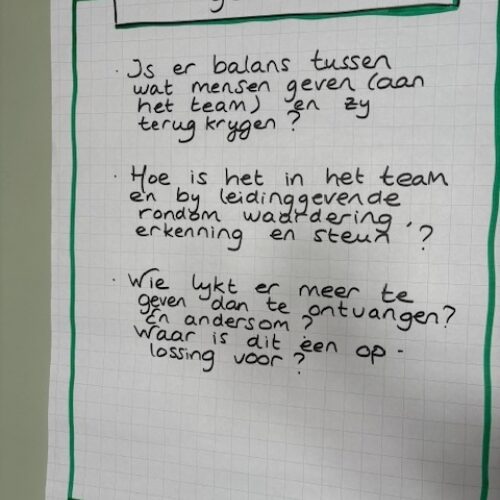 · Is er balans tussen
wat mensen geven (aan
het team) en zy
terug krygen?
· Hoe is het in het team
en by leidinggevende
rondom waardering,
erkenning en steun?
· Wie lykt er meer te
geven dan te ontvangen?
En andersom?
Waar is dit een op-
lossing voor?